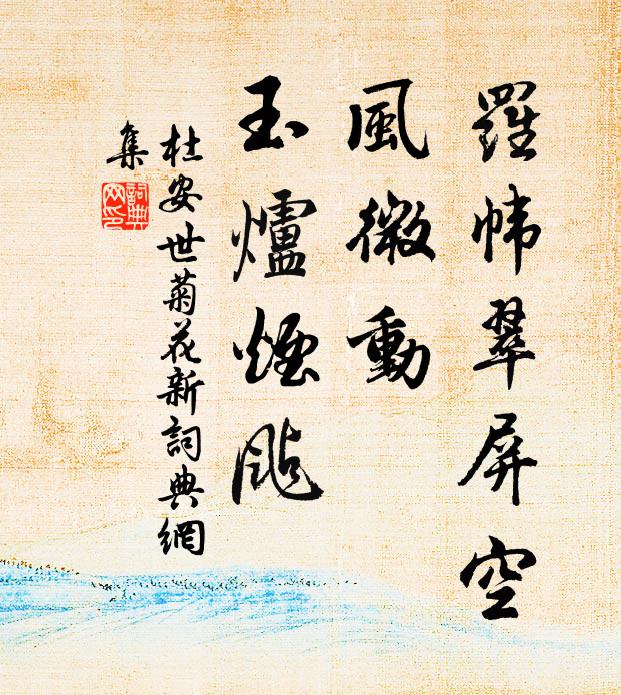 羅幃翠屏空
風微動
玉爐煙颭
杜安世菊花新詞典網
集
詞典網印